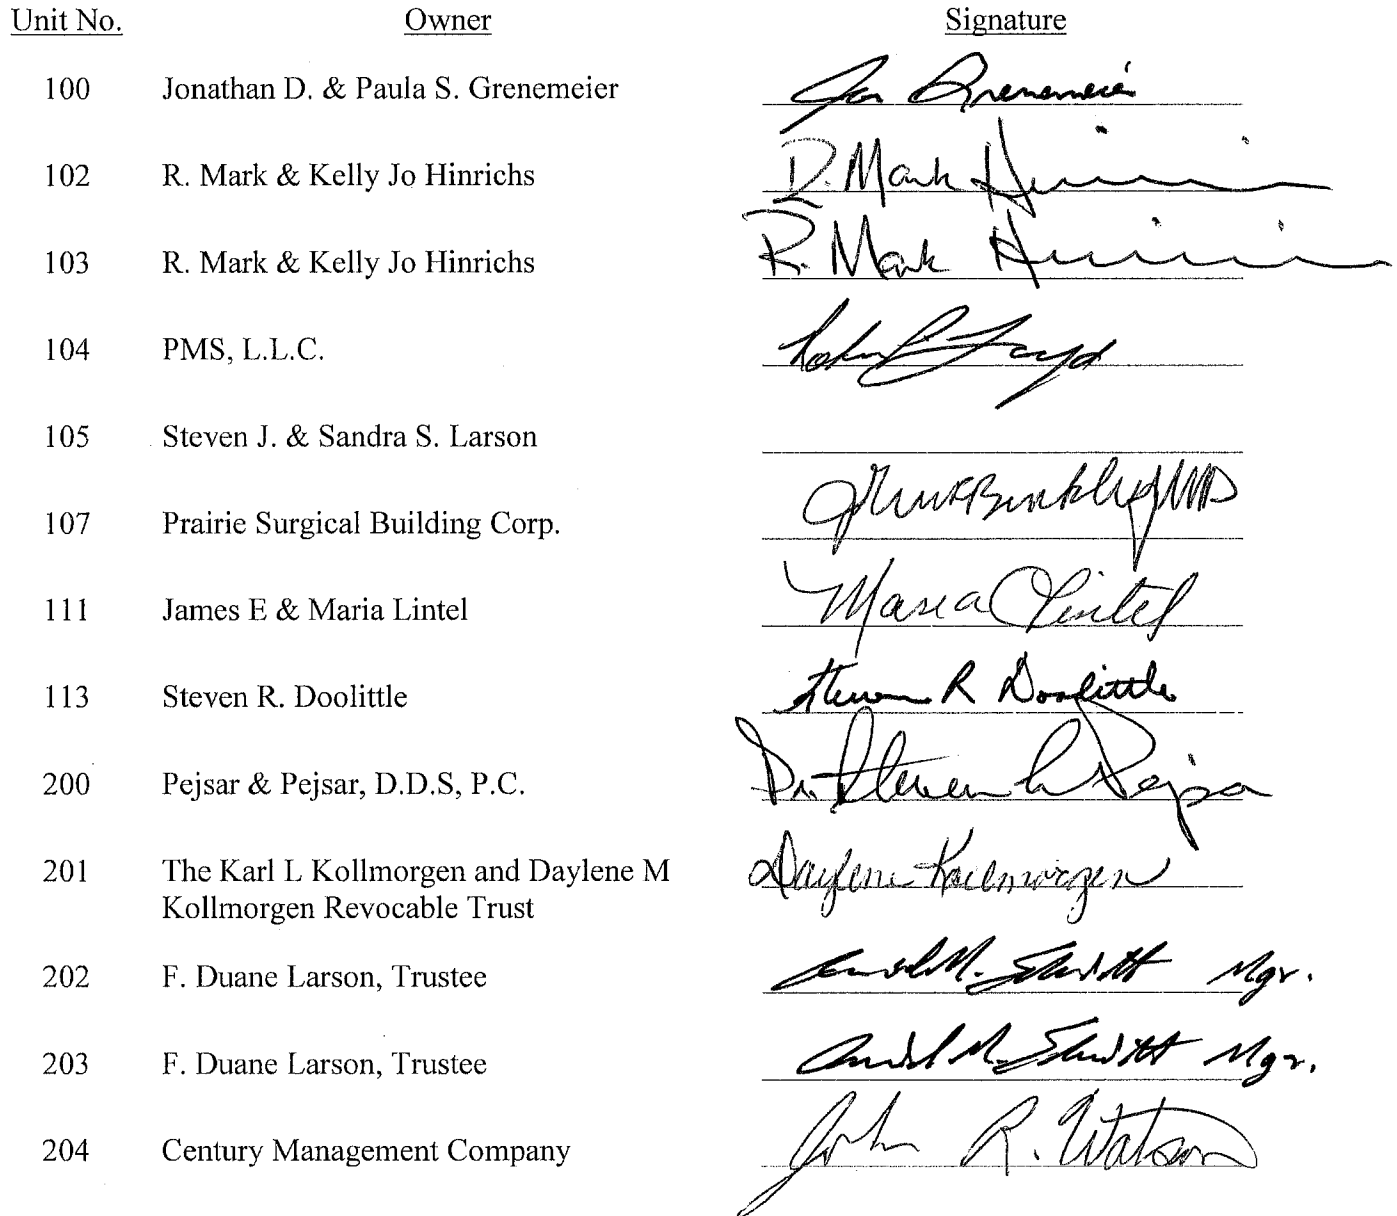 Unit No. Owner Signature
100 Jonathan D. & Paula S. Grenemeier Jon Grenemeier
102 R. Mark & Kelly Jo Hinrichs R. Mark
103 R. Mark & Kelly Jo Hinrichs R. Mark
104 PMS, L.L.C.
105 Steven J. & Sandra S. Larson
107 Prairie Surgical Building Corp. Binkley MD
111 James E & Maria Lintel Maria Lintel
113 Steven R. Doolittle Steven R Doolittle
200 Pejsar & Pejsar, D.D.S, P.C. Dr. Steven
201 The Karl L Kollmorgen and Daylene M Daylene Kollmorgen
Kollmorgen Revocable Trust
202 F. Duane Larson, Trustee Mgr.
203 F. Duane Larson, Trustee Mgr.
204 Century Management Company John R. Watson